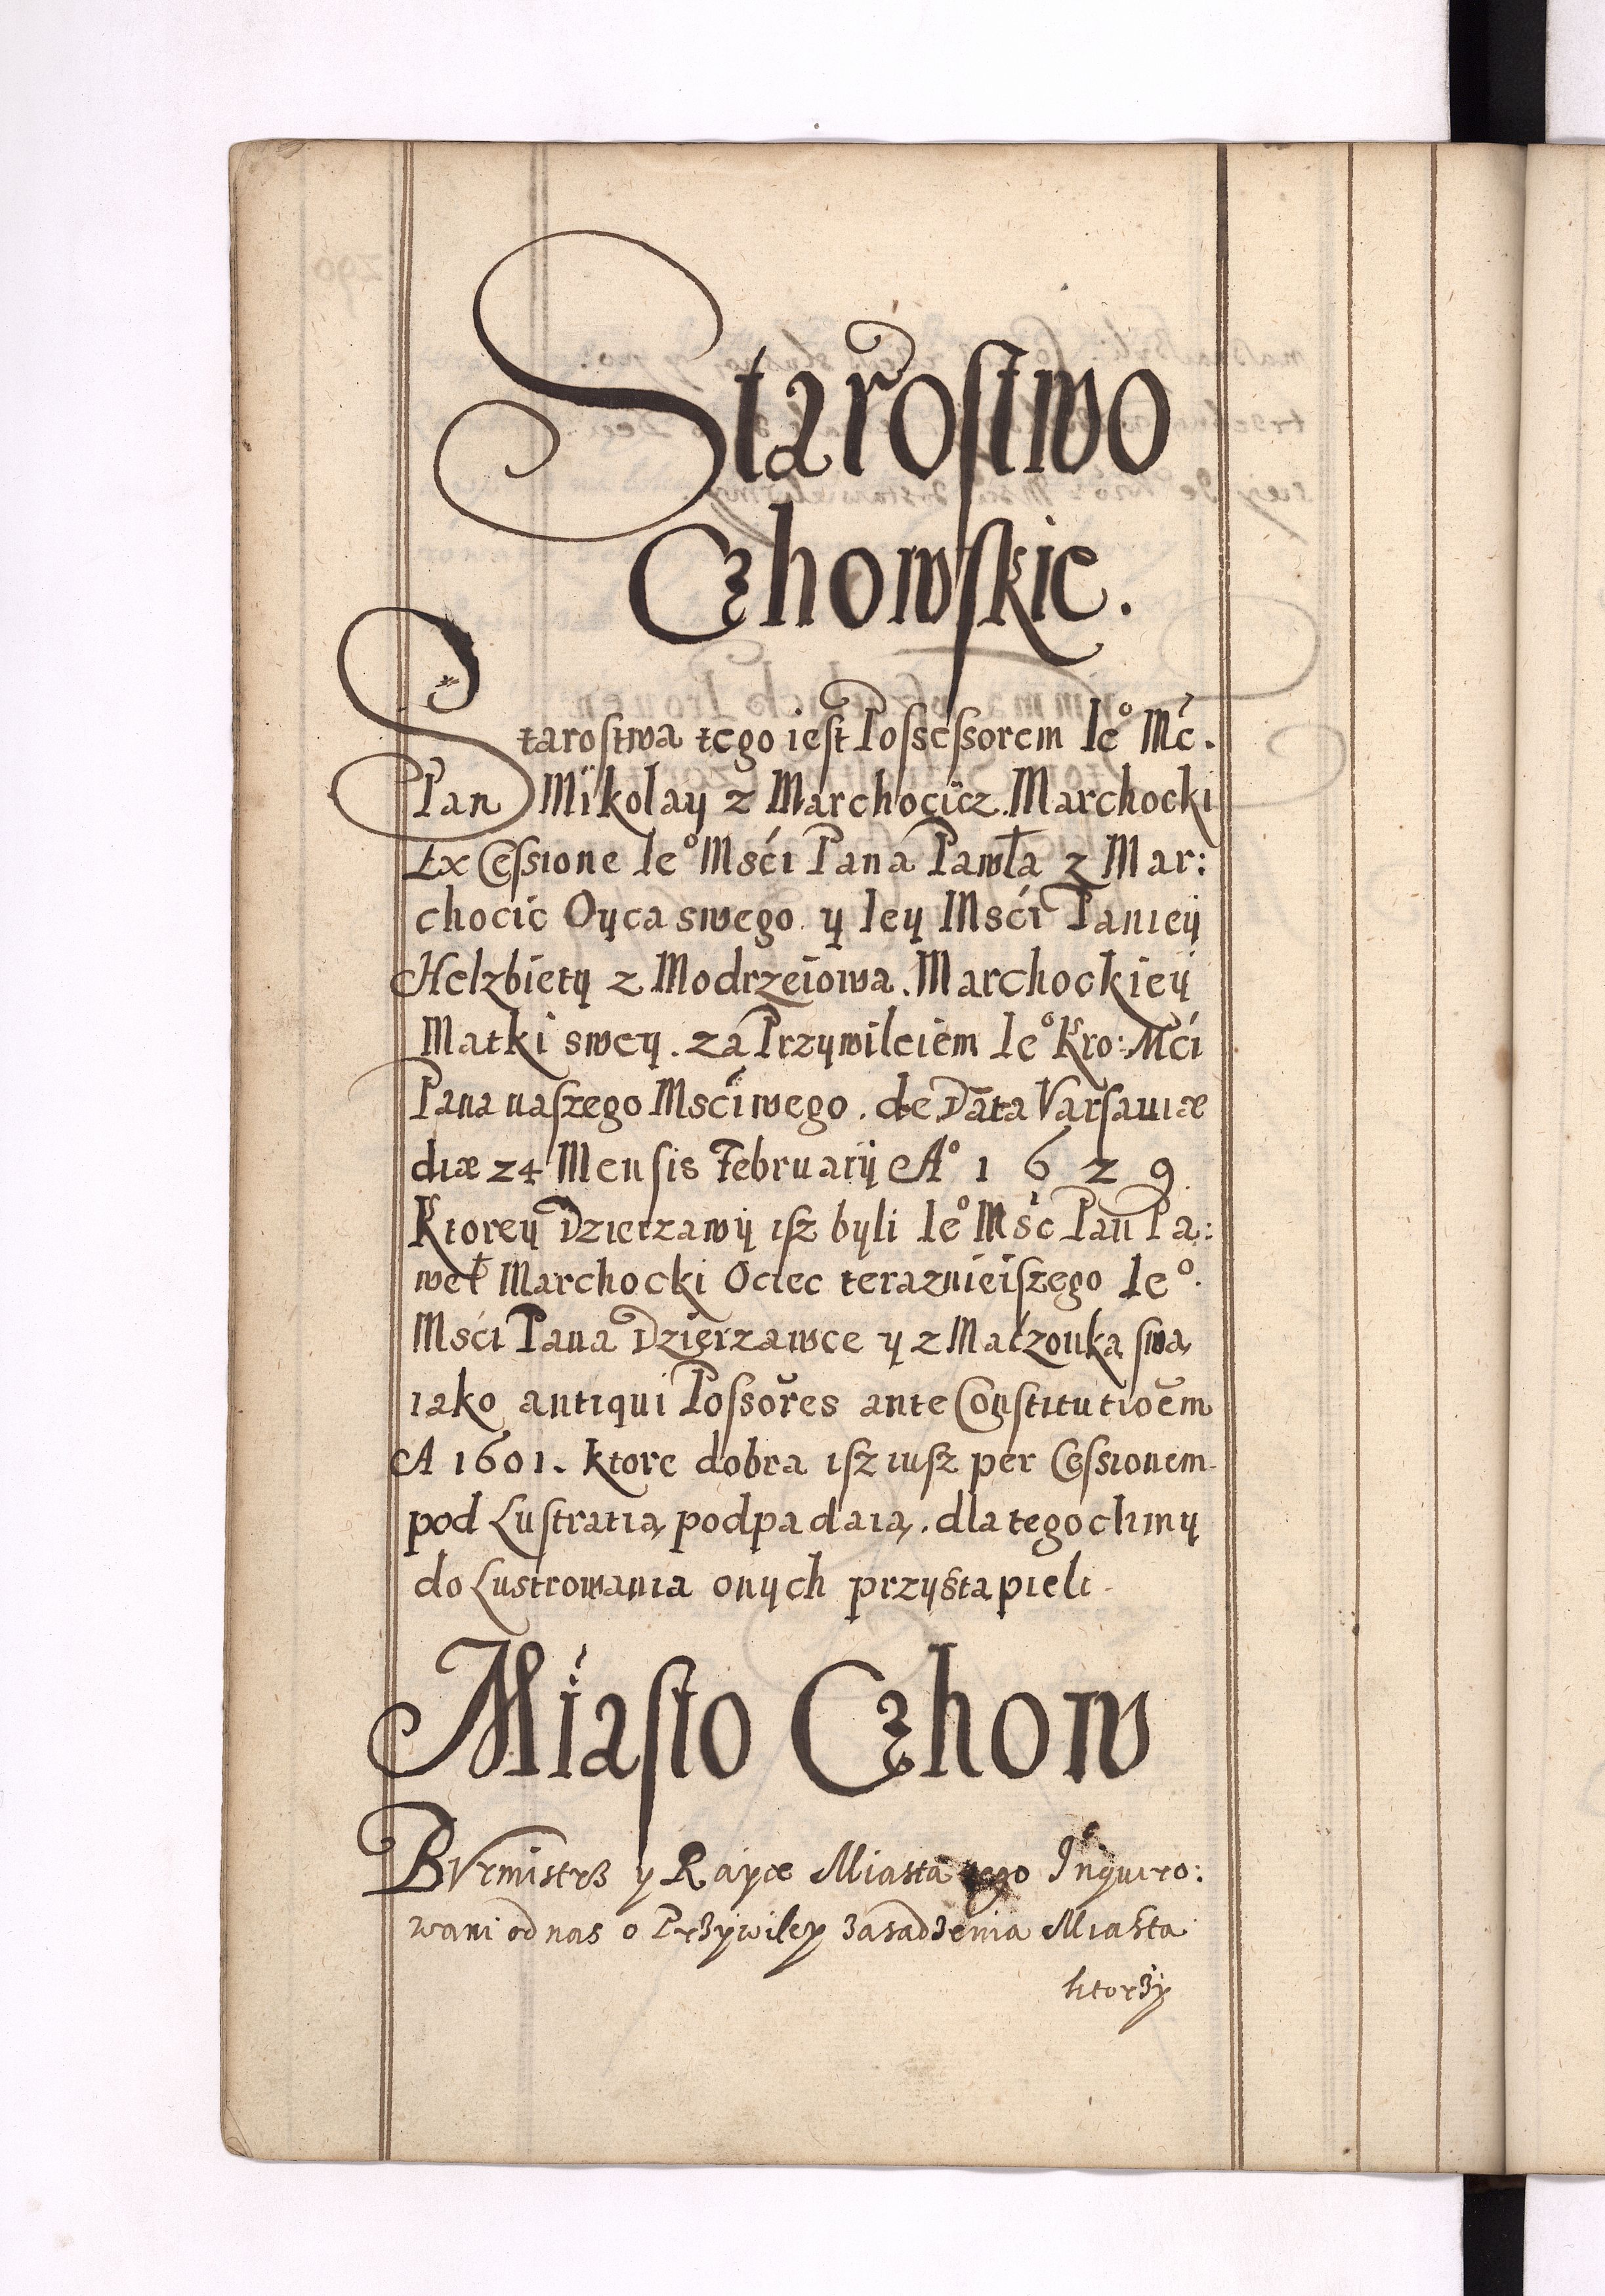 Starostwo
Czhowskie.
Starostwa tego iest Possessorem Ieº Mć.
Pan Mikolay z Marchocicz Marchocki
Ex Cessione Ieº Mśći Pana Pawła z Mar:
chocic Oyca swego y Iey Mśći Panieÿ
Helzbiety z Modrzeiowa. Marchockieÿ
Matki swey. za Przywileiem Ieº Kro: Mći
Pana naszego Mśćiwego. de Data Varsauiæ
diæ 24 Mensis Februarÿ Aº 1629
Ktorey Dzierzawÿ isz byli Ieº Mść Pan Pa:
weł Marchocki Ociec teraznieiszego Ieº.
Mśći Pana Dzierzawce y z Małzonką swą
iako antiqui Possores ante Constitutioem
A 1601. ktore dobra isz iusz per Cessionem
pod Lustratią podpadaią. dla tegochmy
do Lustrowania onych przystapieli
Miasto Czhow
BVrmistrz y Rayce Miasta tego Inquiro:
wani od nas o Przywiley zasadzenia Miasta
ktorzy